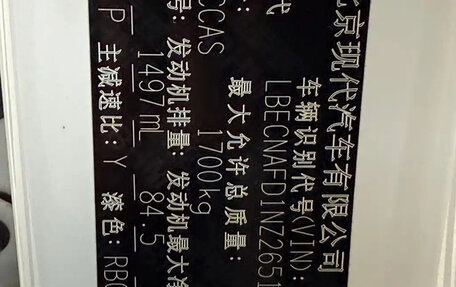 京现代汽车有限公司
车辆识别代号(VIN):
代 LBECNAFD1NZ2651
最大允许总质量:
CCAS 1700kg
号: 发动机排量: 发动机最大净
1497ml 84.5
P 主减速比: Y 漆色: RB